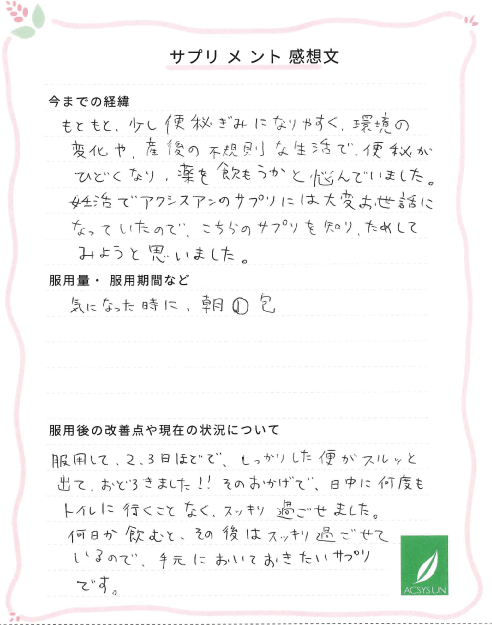 サプリメント感想文
今までの経緯
もともと、少し便秘ぎみになりやすく、環境の
変化や、産後の不規則な生活で、便秘が
ひどくなり、薬を飲もうかと悩んでいました。
妊活でアクシスアンのサプリには大変お世話に
なっていたので、こちらのサプリを知り、ためして
みようと思いました。
服用量・服用期間など
気になった時に、朝①包
服用後の改善点や現在の状況について
服用して、2、3日ほどで、しっかりした便がスルッと
出て、おどろきました!!そのおかげで、日中に何度も
トイレに行くことなく、スッキリ過ごせました。
何日か飲むと、その後はスッキリ過ごせて
いるので、手元においておきたいサプリ
です。
ACSYSUN